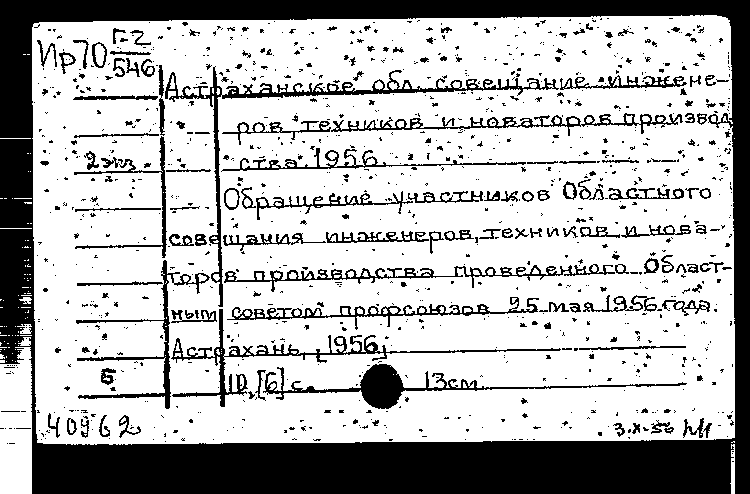 Ир70 Г-2/546
Астраханское обл. совещание инжене-
ров, техников и новаторов производ
2экз. ства. 1956.
Обращение участников Областного
совещания инженеров, техников и нова-
торов производства проведенного Област-
ным советом профсоюзов 25 мая 1956 года.
Астрахань, [1956]
Б 10, [6] с. 13см
40962 3.X-56